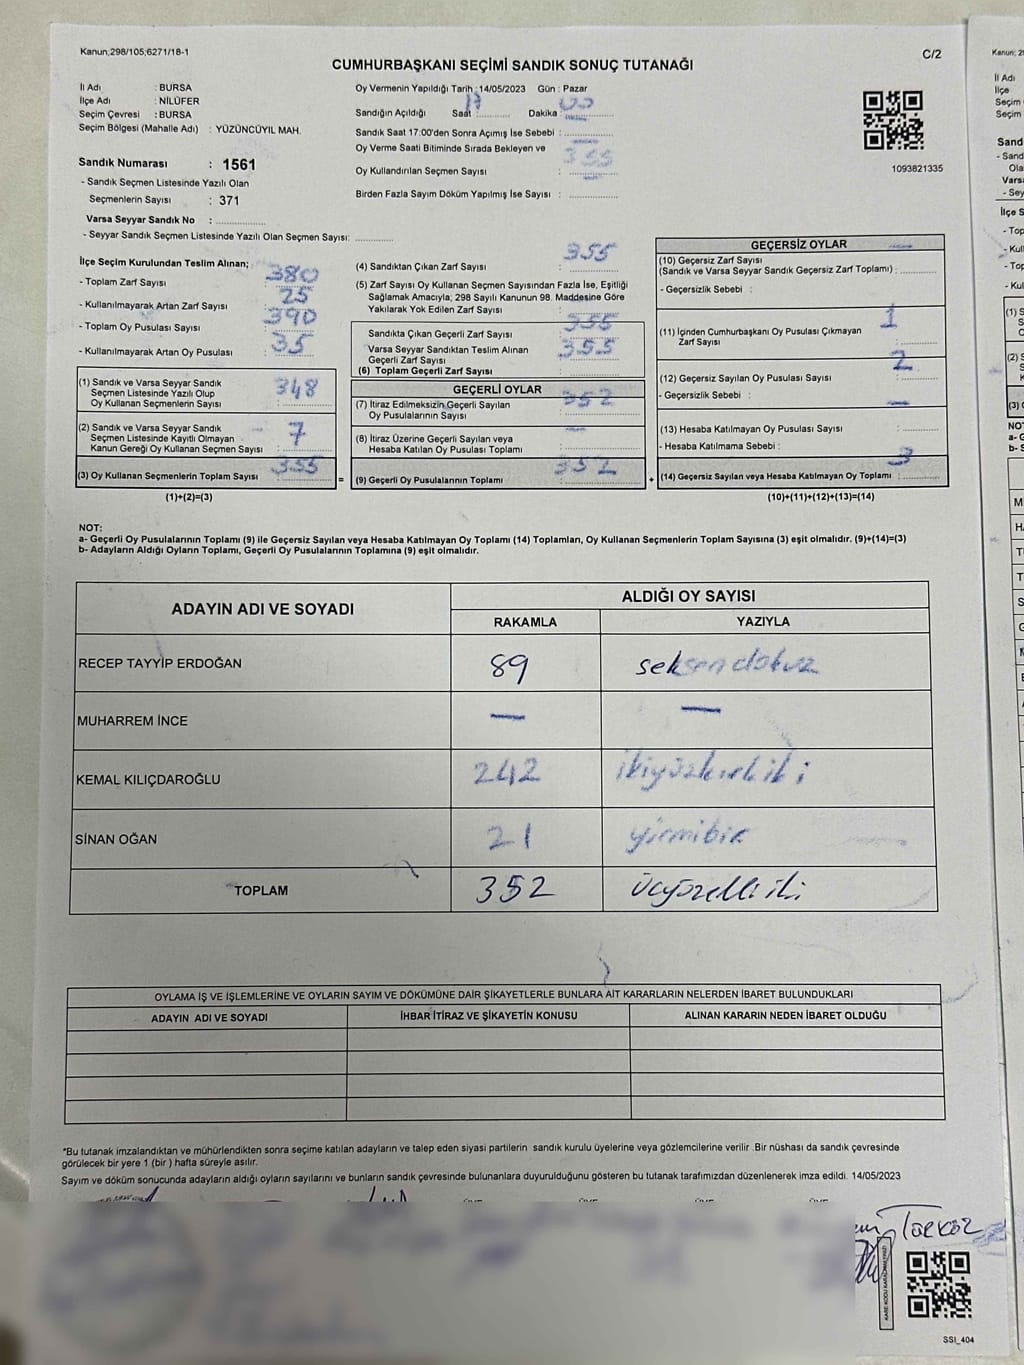 Kanun;298/105;6271/18-1
C/2
CUMHURBAŞKANI SEÇİMİ SANDIK SONUÇ TUTANAĞI
İl Adı : BURSA
İlçe Adı : NİLÜFER
Seçim Çevresi : BURSA
Seçim Bölgesi (Mahalle Adı) : YÜZÜNCÜYIL MAH.
Sandık Numarası : 1561
- Sandık Seçmen Listesinde Yazılı Olan
Seçmenlerin Sayısı : 371
Varsa Seyyar Sandık No :
- Seyyar Sandık Seçmen Listesinde Yazılı Olan Seçmen Sayısı:
Oy Vermenin Yapıldığı Tarih :14/05/2023 Gün : Pazar
Sandığın Açıldığı Saat 17 Dakika : 00
Sandık Saat 17:00'den Sonra Açımış İse Sebebi :
Oy Verme Saati Bitiminde Sırada Bekleyen ve
Oy Kullandırılan Seçmen Sayısı : 355
Birden Fazla Sayım Döküm Yapılmış İse Sayısı :
1093821335
İlçe Seçim Kurulundan Teslim Alınan;
- Toplam Zarf Sayısı : 380
- Kullanılmayarak Artan Zarf Sayısı : 25
- Toplam Oy Pusulası Sayısı : 390
- Kullanılmayarak Artan Oy Pusulası : 35
(1) Sandık ve Varsa Seyyar Sandık
Seçmen Listesinde Yazılı Olup
Oy Kullanan Seçmenlerin Sayısı : 348
(2) Sandık ve Varsa Seyyar Sandık
Seçmen Listesinde Kayıtlı Olmayan
Kanun Gereği Oy Kullanan Seçmen Sayısı : 7
(3) Oy Kullanan Seçmenlerin Toplam Sayısı : 355
(1)+(2)=(3)
(4) Sandıktan Çıkan Zarf Sayısı : 355
(5) Zarf Sayısı Oy Kullanan Seçmen Sayısından Fazla İse, Eşitliği
Sağlamak Amacıyla; 298 Sayılı Kanunun 98. Maddesine Göre
Yakılarak Yok Edilen Zarf Sayısı :
Sandıkta Çıkan Geçerli Zarf Sayısı : 355
Varsa Seyyar Sandıktan Teslim Alınan
Geçerli Zarf Sayısı : 355
(6) Toplam Geçerli Zarf Sayısı :
GEÇERLİ OYLAR
(7) İtiraz Edilmeksizin Geçerli Sayılan
Oy Pusulalarının Sayısı : 352
(8) İtiraz Üzerine Geçerli Sayılan veya
Hesaba Katılan Oy Pusulası Toplamı : —
(9) Geçerli Oy Pusulalarının Toplamı : 352
GEÇERSİZ OYLAR
(10) Geçersiz Zarf Sayısı
(Sandık ve Varsa Seyyar Sandık Geçersiz Zarf Toplamı) : —
- Geçersizlik Sebebi :
(11) İçinden Cumhurbaşkanı Oy Pusulası Çıkmayan
Zarf Sayısı : 1
(12) Geçersiz Sayılan Oy Pusulası Sayısı : 2
- Geçersizlik Sebebi :
(13) Hesaba Katılmayan Oy Pusulası Sayısı : —
- Hesaba Katılmama Sebebi :
(14) Geçersiz Sayılan veya Hesaba Katılmayan Oy Toplamı : 3
(10)+(11)+(12)+(13)=(14)
NOT:
a- Geçerli Oy Pusulalarının Toplamı (9) ile Geçersiz Sayılan veya Hesaba Katılmayan Oy Toplamı (14) Toplamları, Oy Kullanan Seçmenlerin Toplam Sayısına (3) eşit olmalıdır. (9)+(14)=(3)
b- Adayların Aldığı Oyların Toplamı, Geçerli Oy Pusulalarının Toplamına (9) eşit olmalıdır.
ADAYIN ADI VE SOYADI ALDIĞI OY SAYISI
RAKAMLA YAZIYLA
RECEP TAYYİP ERDOĞAN 89 seksendokuz
MUHARREM İNCE — —
KEMAL KILIÇDAROĞLU 242 ikiyüzkırkiki
SİNAN OĞAN 21 yirmibir
TOPLAM 352 üçyüzelliiki
OYLAMA İŞ VE İŞLEMLERİNE VE OYLARIN SAYIM VE DÖKÜMÜNE DAİR ŞİKAYETLERLE BUNLARA AİT KARARLARIN NELERDEN İBARET BULUNDUKLARI
ADAYIN ADI VE SOYADI İHBAR İTİRAZ VE ŞİKAYETİN KONUSU ALINAN KARARIN NEDEN İBARET OLDUĞU
*Bu tutanak imzalandıktan ve mühürlendikten sonra seçime katılan adayların ve talep eden siyasi partilerin sandık kurulu üyelerine veya gözlemcilerine verilir. Bir nüshası da sandık çevresinde
görülecek bir yere 1 (bir ) hafta süreyle asılır.
Sayım ve döküm sonucunda adayların aldığı oyların sayılarını ve bunların sandık çevresinde bulunanlara duyurulduğunu gösteren bu tutanak tarafımızdan düzenlenerek imza edildi. 14/05/2023
SSI_404